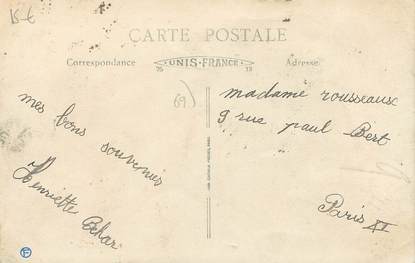 15-€
CARTE POSTALE
Correspondance
75 UNIS-FRANCE 13
Adresse
69)
mes bons souvenirs
Henriette Behar
madame rousseaux
9 rue paul Bert
Paris XI